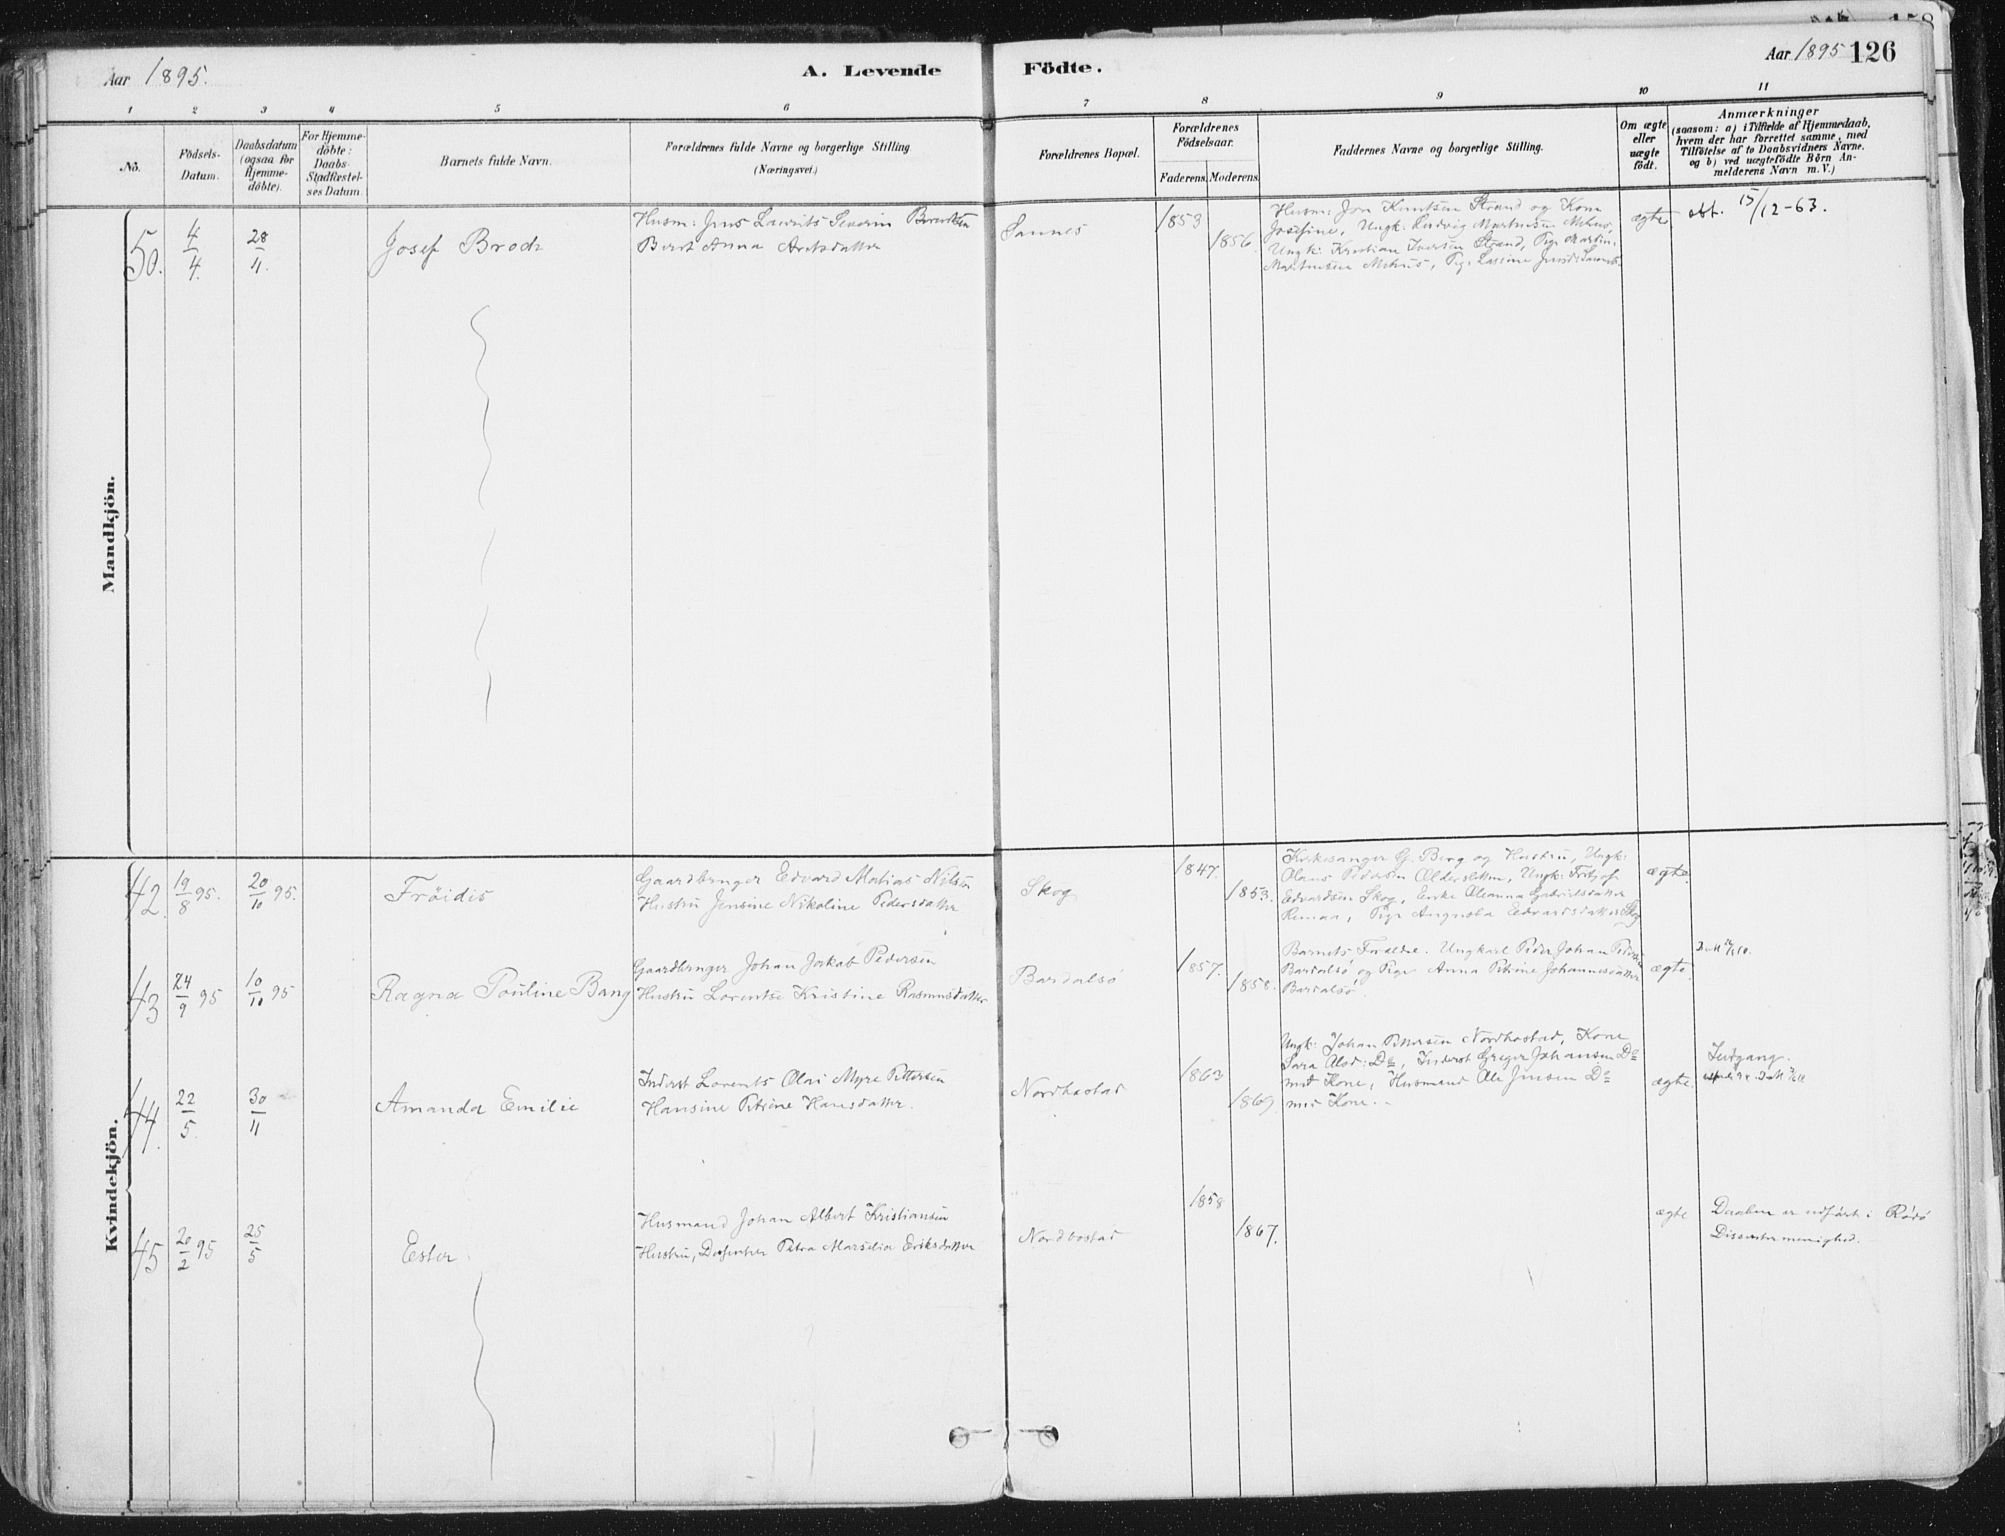 Aar 1895.
A. Levende Födte.
Aar 1895 126
1 2 3 4 5 6 7 8 9 10 11
No.
Födsels-
Datum.
Daabsdatum
(ogsaa for
Hjemme-
döbte).
For Hjemme-
döbte:
Daabs-
Stadfæstel-
ses Datum.
Barnets fulde Navn.
Forældrenes fulde Navne og borgerlige Stilling
(Næringsvei.)
Forældrenes Bopæl.
Forældrenes
Födselsaar.
Faderens. Moderens.
Faddernes Navne og borgerlige Stilling.
Om ægte
eller
uægte
födt.
Anmærkninger
(saasom: a) i Tilfælde af Hjemmedaab,
hvem der har forrettet samme, med
Tilföielse af to Daabsvidners Navne.
og b) ved uægtefödte Börn An-
melderens Navn m. V.)
Mandkjön.
50. 4/4. 28/11. Josef Broch
Husm: Jens Laurits Severin Berentsen
Berit Anna Arntsdatter
Sannes
1853
1856.
Husm: Jon Knutsen Strand og Kone
Josefine, Ungk: Ludvig Martinsen Mehus,
Ungk: Kristian Iversen Strand, Pige Martine
Martinsen Mehus, Pige Lassine
ægte
obt. 15/12-63.
Kvindekjön.
42. 19/8 95. 20/10 95. Fröidis
Gaardbruger Edvard Matias Nilsen
Hustru Jensine Nikoline Pedersdatter
Skog
1847.
1853.
Kirkesanger G. Berg og Hustru, Ungk:
Olaus Pedersen Oldersletten, Ungk: Fritjof
Edvardsen Skog, Enke Oleanna Gabrielsdatter
Remaa, Pige Edvardsdatter Skog
ægte.
43 24/9 95 10/10 95 Ragna Pouline Bang
Gaardbruger Johan Jakob Pedersen
Hustru Lorentse Kristine Rasmusdatter
Bardalsö
1857.
1858.
Barnets Forældre. Ungkarl Peder Johan Pedersen
Bardalsö og Pige Anna Petrine Johannesdatter
Bardalsö
ægte
44. 22/5. 30/11 Amanda Emilie
Inderst Lorents Olai Myre Pettersen
Hansine Petrine Hansdatter.
Nordhostad
1863
1869
Ungk: Johan Pettersen Nordhostad, Kone
Sara Olsd: Do, Inderst Greger Johansen Do
med Kone, Husmand Ole Jensen Do
med Kone.
ægte.
Indgang.
45 20/2 95 25/5 Ester
Husmand Johan Albert Kristiansen
Hustru, Petra Marselia Eriksdatter
Nordhostad
1858
1867.
ægte
Daaben er udført i Rödö
Dissentermenighed.